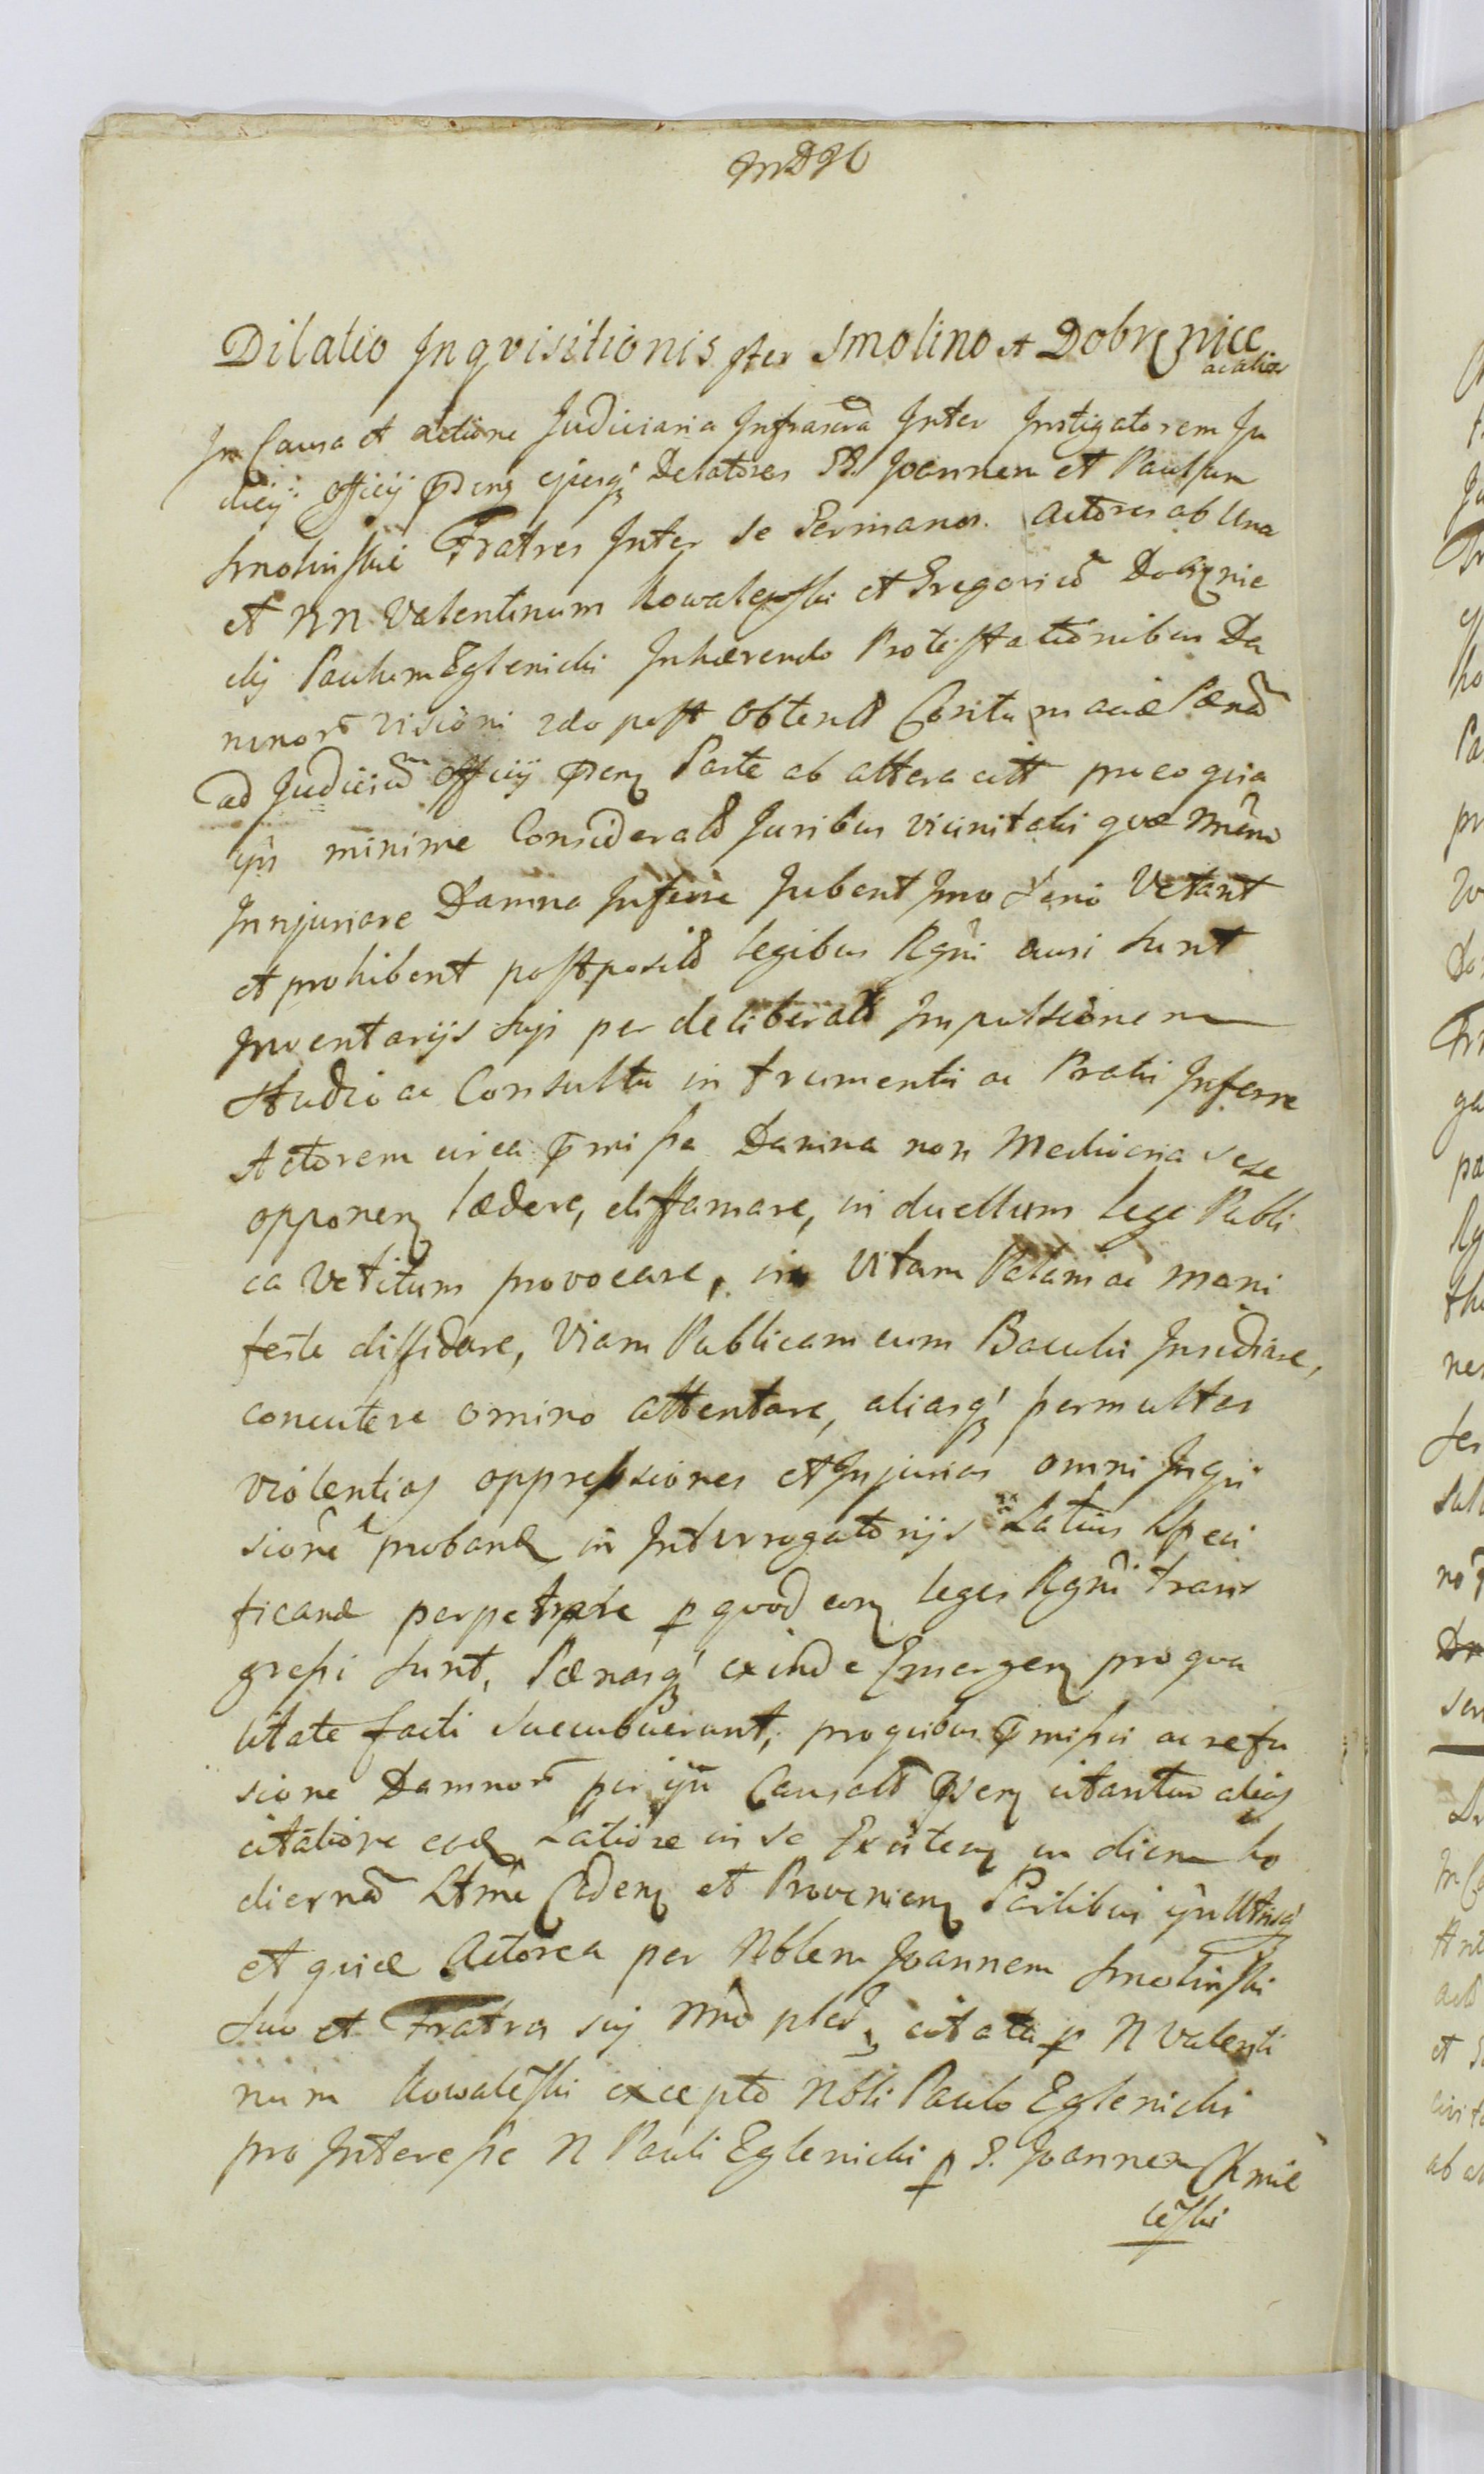 Dilatio Inqvisitionis Iter Smolino et Dobrznicc
ac alios
In Causa et actione Judiciaria Infrascrã Inter Instigatorem Ju
dicij officij pdens ejusq Delatores SS. Joannem et Paulum
Smolinski Fratres Inter se Germanos. actores ab Una
et NN Valentinum Kowalewski et Gregoriũ Dobrznie
cki Paulum Eglenicki Inhærendo Protestationibus Da
mnorũ Visioni 2do post Obtent Contumaciæ Pænã
ad Judiciũ officij pdens Parte ab altera citt pro eo quia
ijsi minime Considerat Juribus vicinitatis quæ nemini
Injuriare Damna Inferre Jubent Imo Serio Vetant
et prohibent postposit legibus Rgni ausi sunt
Inventarijs suis per deliberat Impulsionem
Studio ac Consulta in frumentis ac Pratis Inferre
Actorem circa pmissa Damna non Mediocria sese
opponen lædere, diffamare, in duellum lege Publi
ca Vetitum provocare, in Vitam Palam ac mani
feste diffidare, Viam Publicam cum Baculis Insidiare,
concutere omino attentare, aliasq permultas
violentias oppressiones et Injurias omni Inqui
sione proband in Interrogatorijs Latius Speci
ficand perpetrare p quod eorũ leges Rgni trans
gressi sunt, Pænasq exinde Emergen pro qua
litate facti succubuerunt, pro quibus pmissis ac refu
sione Damnorũ per ijsi Causat psen citantur alias
citatione eod Latiore in se Existen in diem ho
diernã Ltime Caden et Provenien Partibus ijsi Utrisq
et quidē Actorea per Nblem Joannem Smolinski
suo et Fratris sui Nnõ pled, citata p N Valenti
num Kowaleski excepto Nbli Paulo Eglenicki
pro Interesse N Pauli Eglenicki p S. Joannem Chmie
leski